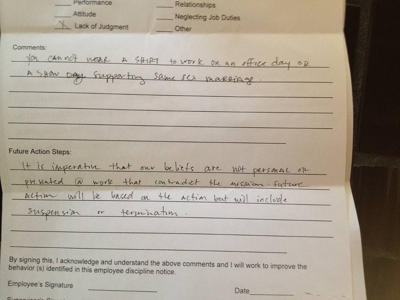 Performance
Relationships
Attitude
Neglecting Job Duties
X Lack of Judgment
Other
Comments:
You cannot wear a shirt to work on an office day or
a show day supporting same sex marriage.
Future Action Steps:
It is imperative that our beliefs are not personal or
@ work that contradict the mission. Future
action will be based on the action but will include
suspension or termination.
By signing this, I acknowledge and understand the above comments and I will work to improve the
behavior (s) identified in this employee discipline notice.
Employee's Signature
Date